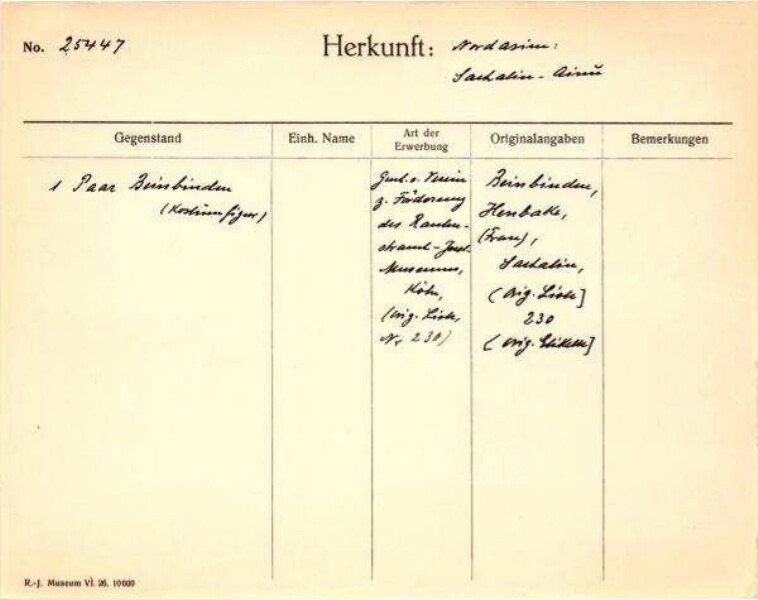 No. 25447
Herkunft: Nordasien:
Sachalin-Ainu
Gegenstand
Einh. Name
Art der
Erwerbung
Originalangaben
Bemerkungen
1 Paar Beinbinden
(Kostümfigur)
v. Verein
z. Förderung
des Rauten-
strauch-Joest
Museums,
Köln,
(Orig. Liste,
Nr 230)
Beinbinden,
(Frau),
Sachalin,
(Orig. Liste]
230
(Orig. Etikette]
R.-J. Museum VI. 26. 10000